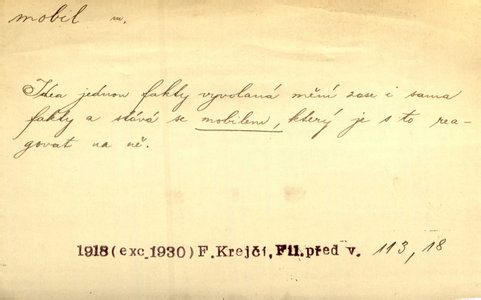 mobil m.
Idea jednou fakty vyvolaná mění zase i sama
fakty a stává se mobilem, který je s to rea-
govat na ně.
1918(exc.1930) F.Krejčí,Fil.před v. 113,18